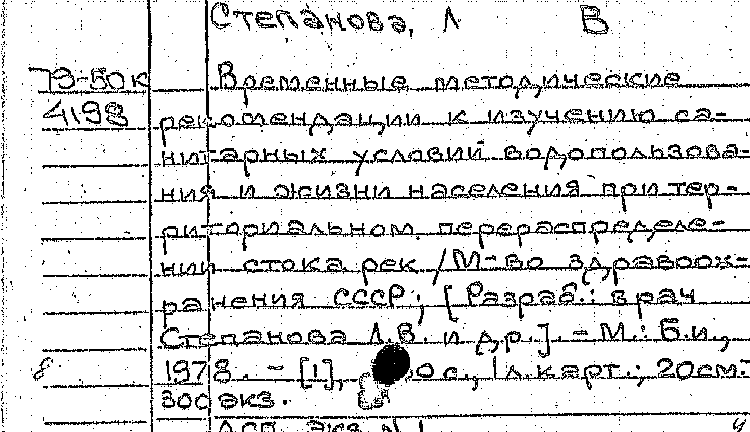 Степанова, Л В
79-50к Временные методические
4198 рекомендации к изучению са-
нитарных условий водопользова-
ния и жизни населения при тер-
риториальном перераспределе-
нии стока рек / М-во здравоох-
ранения СССР; [Разраб.: врач
Степанова Л.В. и др.]. - М.: Б.и.,
8 1978. - [1], с., 1 л. карт.; 20см.
300 экз.